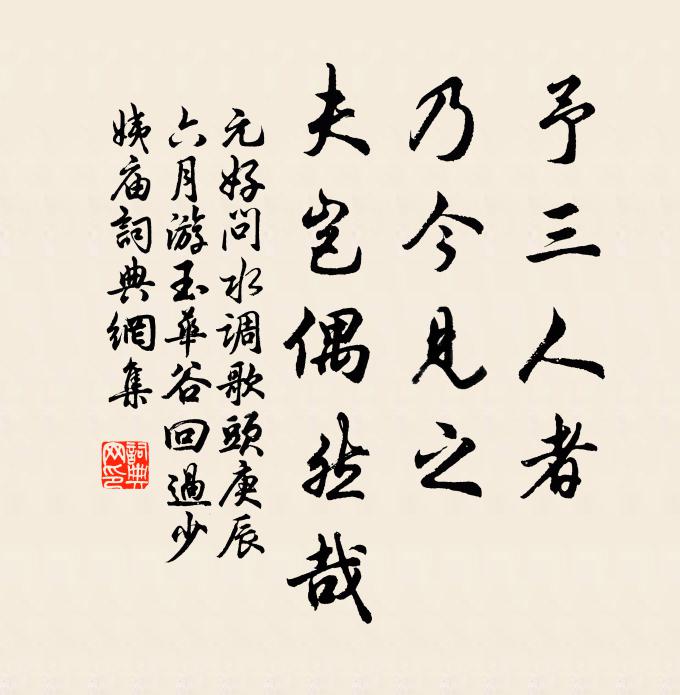 予三人者
乃今見之
夫豈偶然哉
元好問水调歌頭庚辰
六月游玉華谷回過少
姨庙詞典網集
詞典
网印